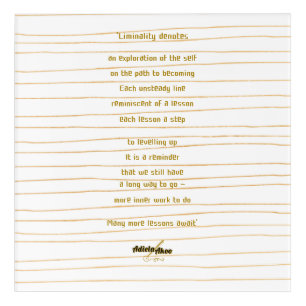 'Liminality denotes
an exploration of the self
on the path to becoming
Each unsteady line
reminiscent of a lesson
each lesson a step
to levelling up
It is a reminder
that we still have
a long way to go –
more inner work to do
Many more lessons await'
Adiela Akoo